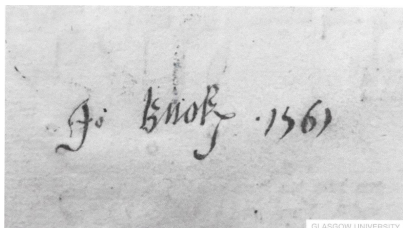 Jo Knox · 1561
GLASGOW UNIVERSITY